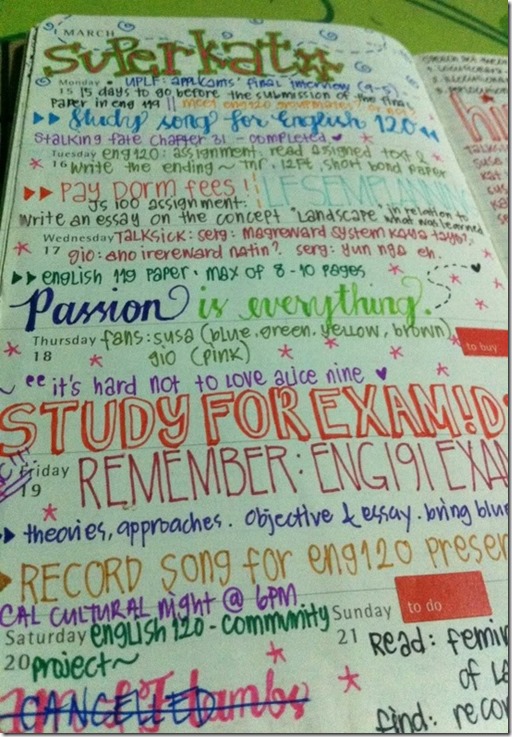 MARCH
superkaty
Monday • UPLF: applcoms' final interview (9-5).
15 15 days to go before the submission of the final
paper in eng 119 || meet eng120 groupmates?
study song for English 120
stalking fate chapter 31 - completed ♥
Tuesday eng120: assignment. read assigned text &
16 write the ending ~ TNR. 12pt, short bond paper
Pay Dorm fees!! LFS EM PLANNING
JS 100 assignment:
write an essay on the concept "Landscape" in relation to
what was learned
Wednesday TALKSICK: serg: magreward system kaya tayo?
17 gio: ano irereward natin? serg: yun nga eh.
english 119 paper. max of 8-10 pages
Passion is everything.
Thursday fans: susa (blue.green.yellow, brown)
18 gio (pink)
to buy
"it's hard not to love alice nine ♥
STUDY FOR EXAM!
Friday REMEMBER: ENG191 EXAM
19
theories, approaches. objective & essay. bring blue
RECORD song for eng120 presen
CAL CULTURAL night @ 6PM
Saturday english 120 - community
20 project~
CANCELLED
lambs
Sunday
21
to do
Read: femin
of
find: recor